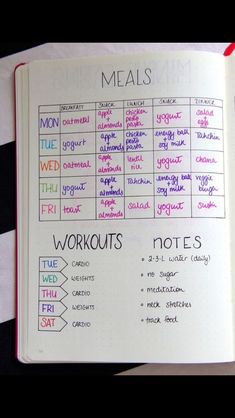 MEALS
BREAKFAST SNACK LUNCH SNACK DINNER
MON oatmeal apple + almonds chicken pesto pasta yogurt salad + eggs
TUE yogurt apple + almonds chicken pesto pasta energy ball + soy milk Tahchin
WED oatmeal apple + almonds lentil rice yogurt
THU yogurt apple + almonds Tahchin energy ball + soy milk veggie burger
FRI toast apple + almonds salad yogurt sushi
WORKOUTS
TUE CARDIO
WED WEIGHTS
THU CARDIO
FRI WEIGHTS
SAT CARDIO
NOTES
• 2-3-L water (daily)
• no sugar
• meditation
• neck stretches
• track food